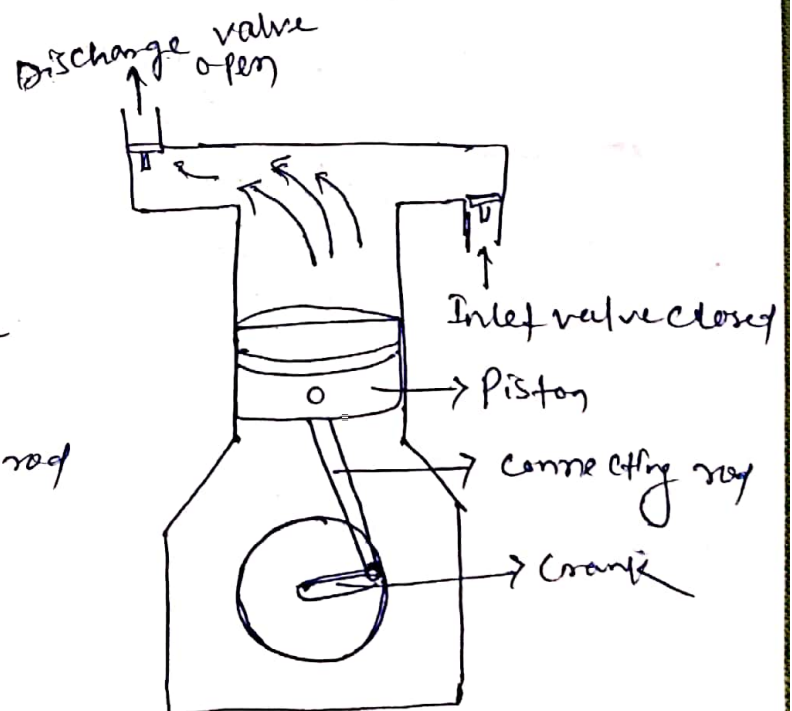 Discharge valve
open
Inlet valve closed
Piston
rod
connecting rod
Crank